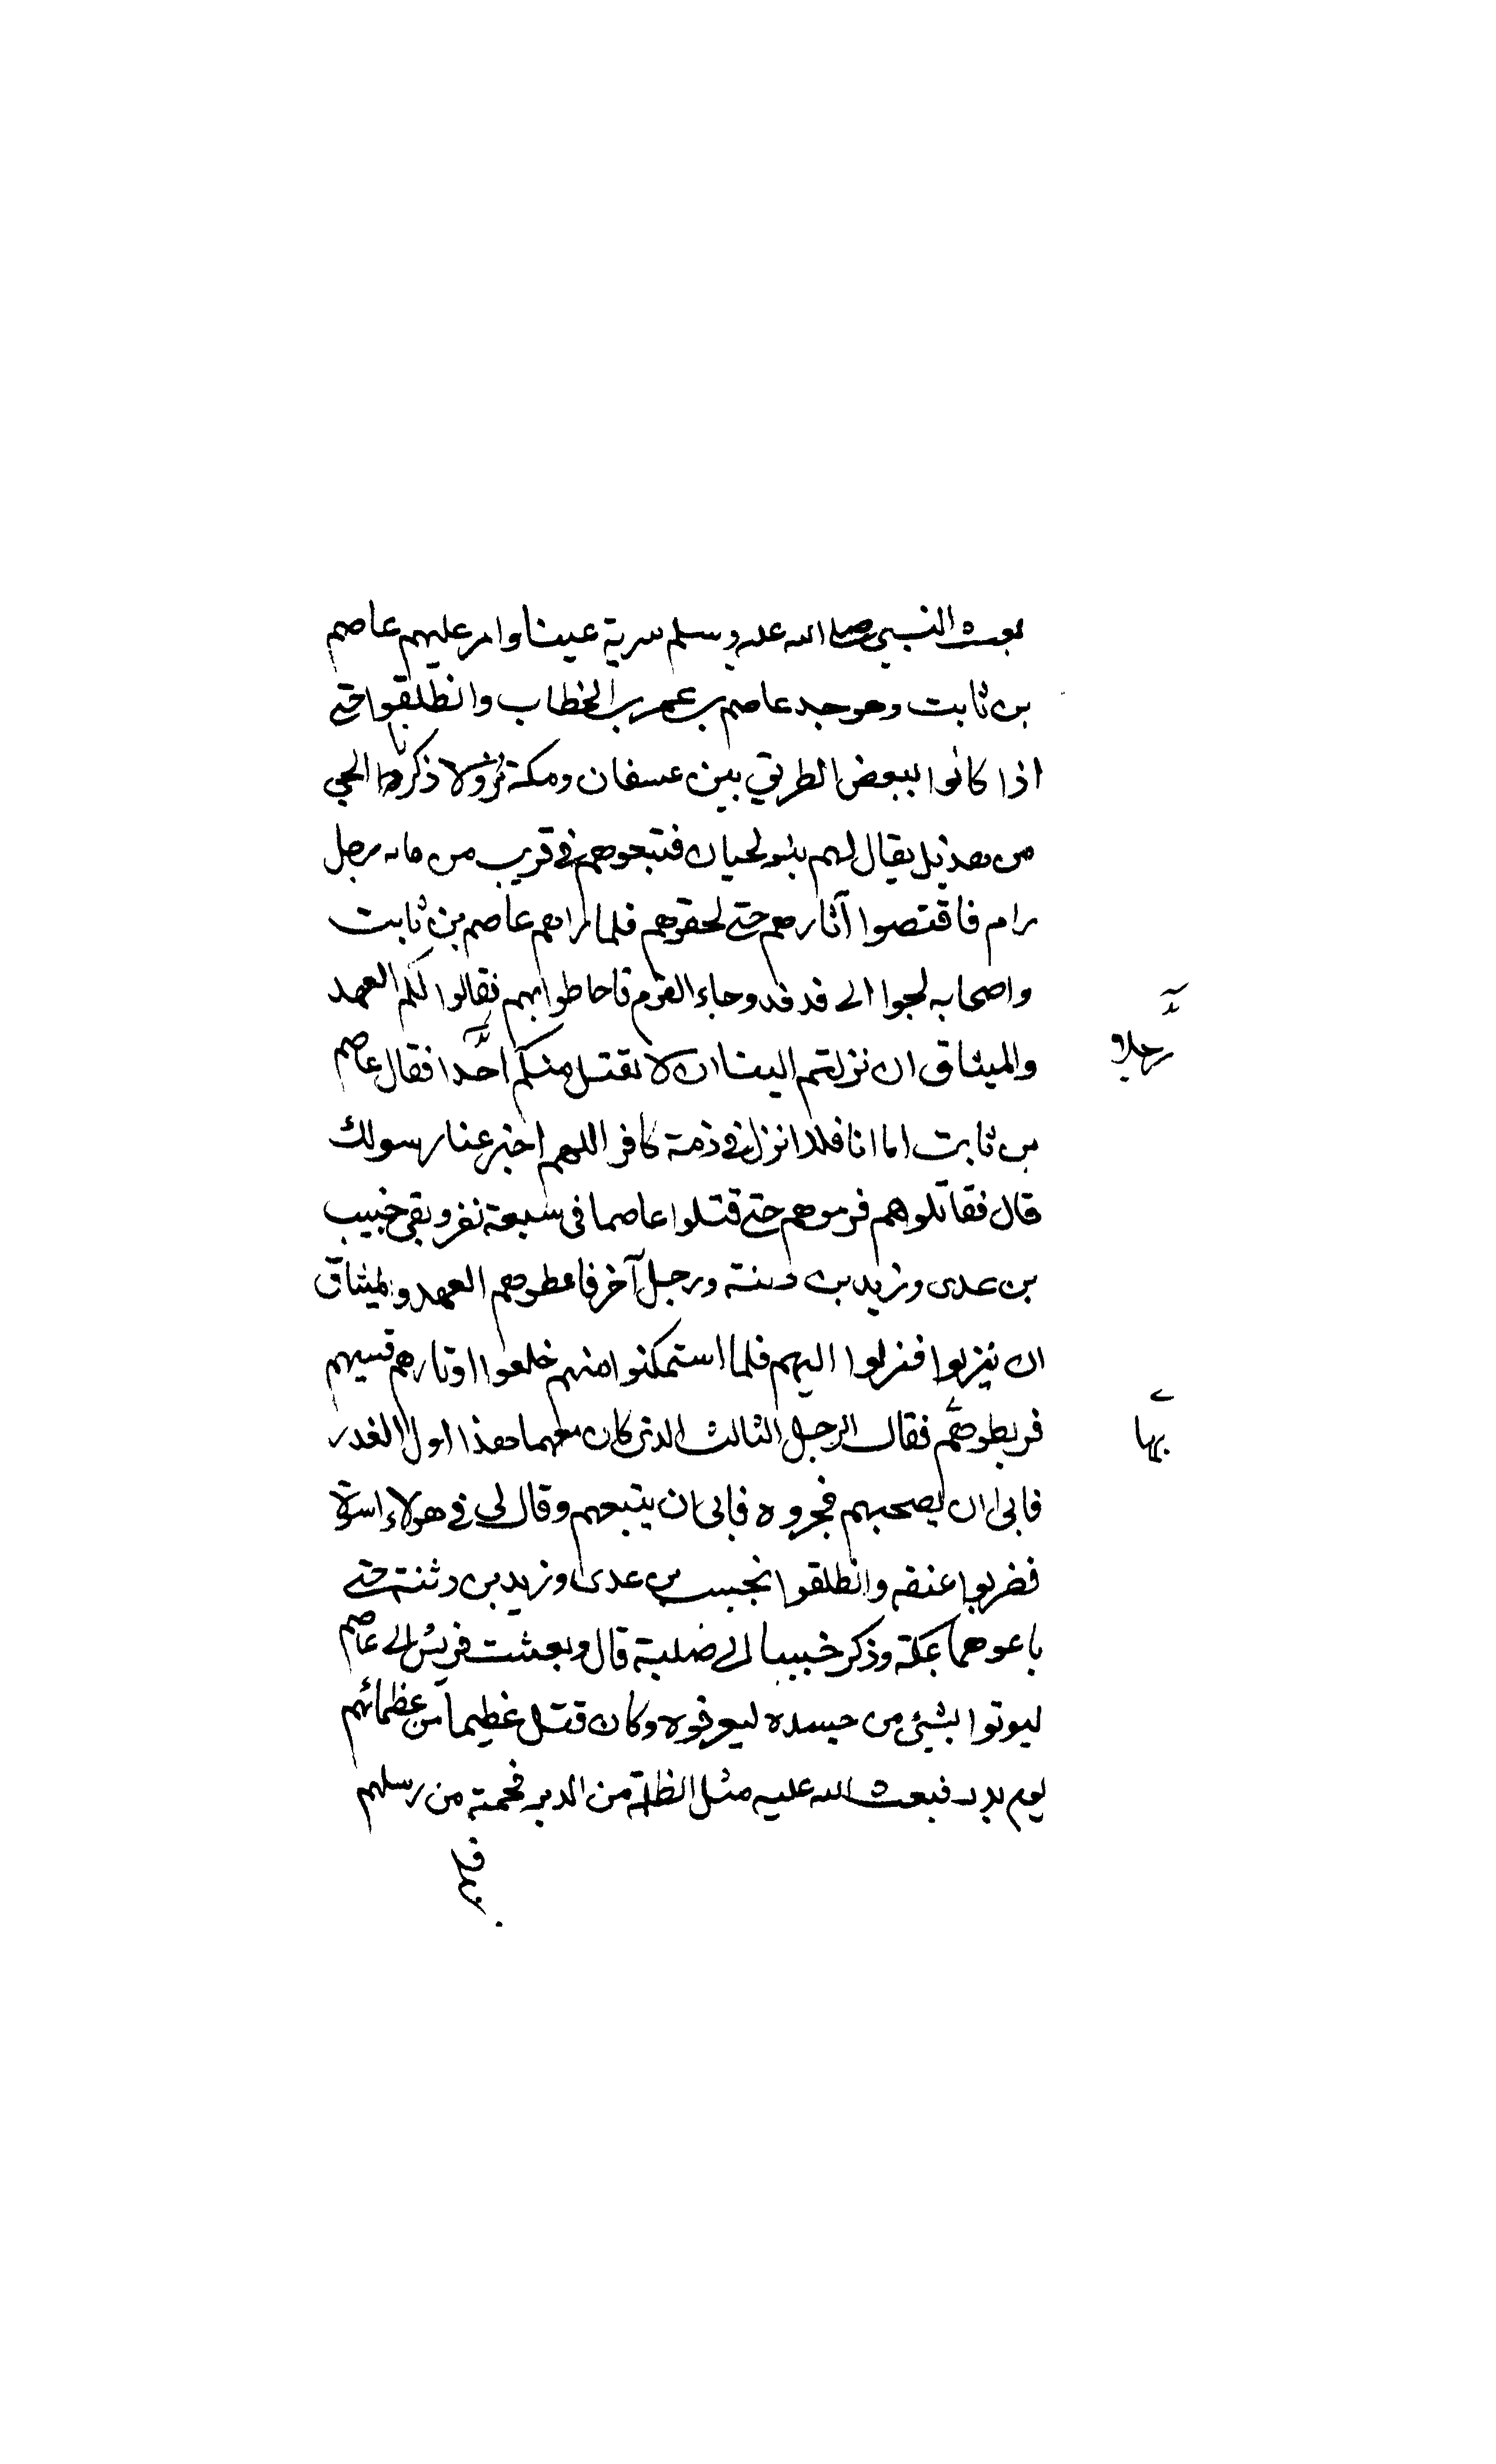 بعث النبي صلى الله عليه وسلم سرية عينا وامر عليهم عاصم
بن ثابت وهو جد عاصم بن عمر بن الخطاب وانطلقوا حتى
اذا كانوا ببعض الطريق بين عسفان ومكة نزولا ذكروا لحي
من هذيل يقال لهم بنو لحيان فتبعوهم في قريب من مائة رجل
رام فاقتصوا آثارهم حتى لحقوهم فلما رآهم عاصم بن ثابت
واصحابه لجوا الى فدفد وجاء القوم فاحاطوا بهم فقالوا لكم العهد
والميثاق ان نزلتم الينا ان لا نقتل منكم احدا فقال عاصم
رجلا
بن ثابت اما انا فلا انزل في ذمة كافر اللهم اخبر عنا رسولك
قال فقاتلوهم فرموهم حتى قتلوا عاصما في سبعة نفر وبقي خبيب
بن عدى وزيد بن دثنة ورجل آخر فاعطوهم العهد والميثاق
ان ينزلوا فنزلوا اليهم فلما استمكنوا منهم خلعوا اوتار قسيهم
فربطوهم فقال الرجل الثالث الذى كان معهما هذا اول الغدر
بها
فابى ان يصحبهم فجروه فابى ان يتبعهم وقال لى في هولاء اسوة
فضربوا عنقه وانطلقوا بخبيب بن عدى وزيد بن دثنة حتى
باعوهما بمكة وذكر خبيبا الى صلبه قال وبعثت قريش الى عاصم
ليوتوا بشيئ من جسده ليعرفوه وكان قتل عظيما من عظمائهم
يوم بدر فبعث الله عليه مثل الظلة من الدبر فحمته من رسلهم
فلم